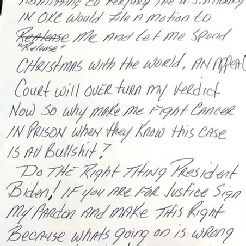 IN OKC would file A motion to
Release me And Let me Spend
"Release"
CHRISTMAS with the world, AN APPeAl
Court will over turn my verdict
Now So why make me Fight Cancer
IN PRISON when they know this case
IS All Bullshit?
Do THE Right Thing President
Biden! IF you ARE FOR Justice Sign
My PARdon And MAKE This Right
Because whats going on is wrong